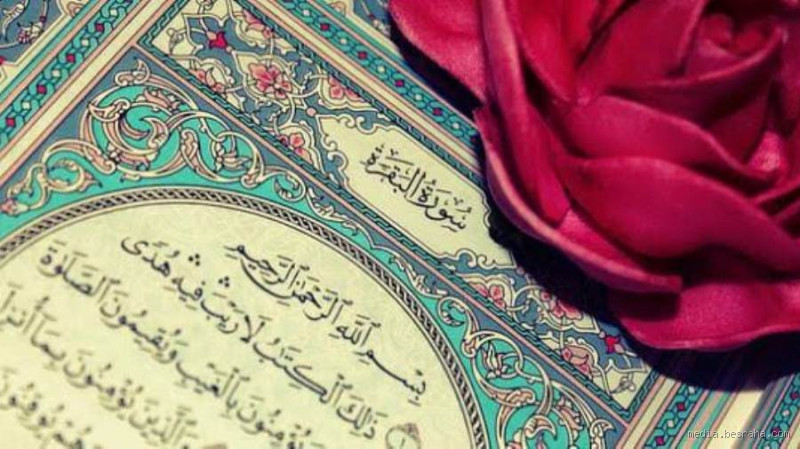 سُورَةُ الْبَقَرَةِ
بِسْمِ اللَّهِ الرَّحْمَٰنِ الرَّحِيمِ
ذَٰلِكَ الْكِتَابُ لَا رَيْبَ فِيهِ هُدًى
بِالْغَيْبِ وَيُقِيمُونَ الصَّلَاةَ
وَالَّذِينَ يُؤْمِنُونَ بِمَا أُنزِلَ
media.besraha.com